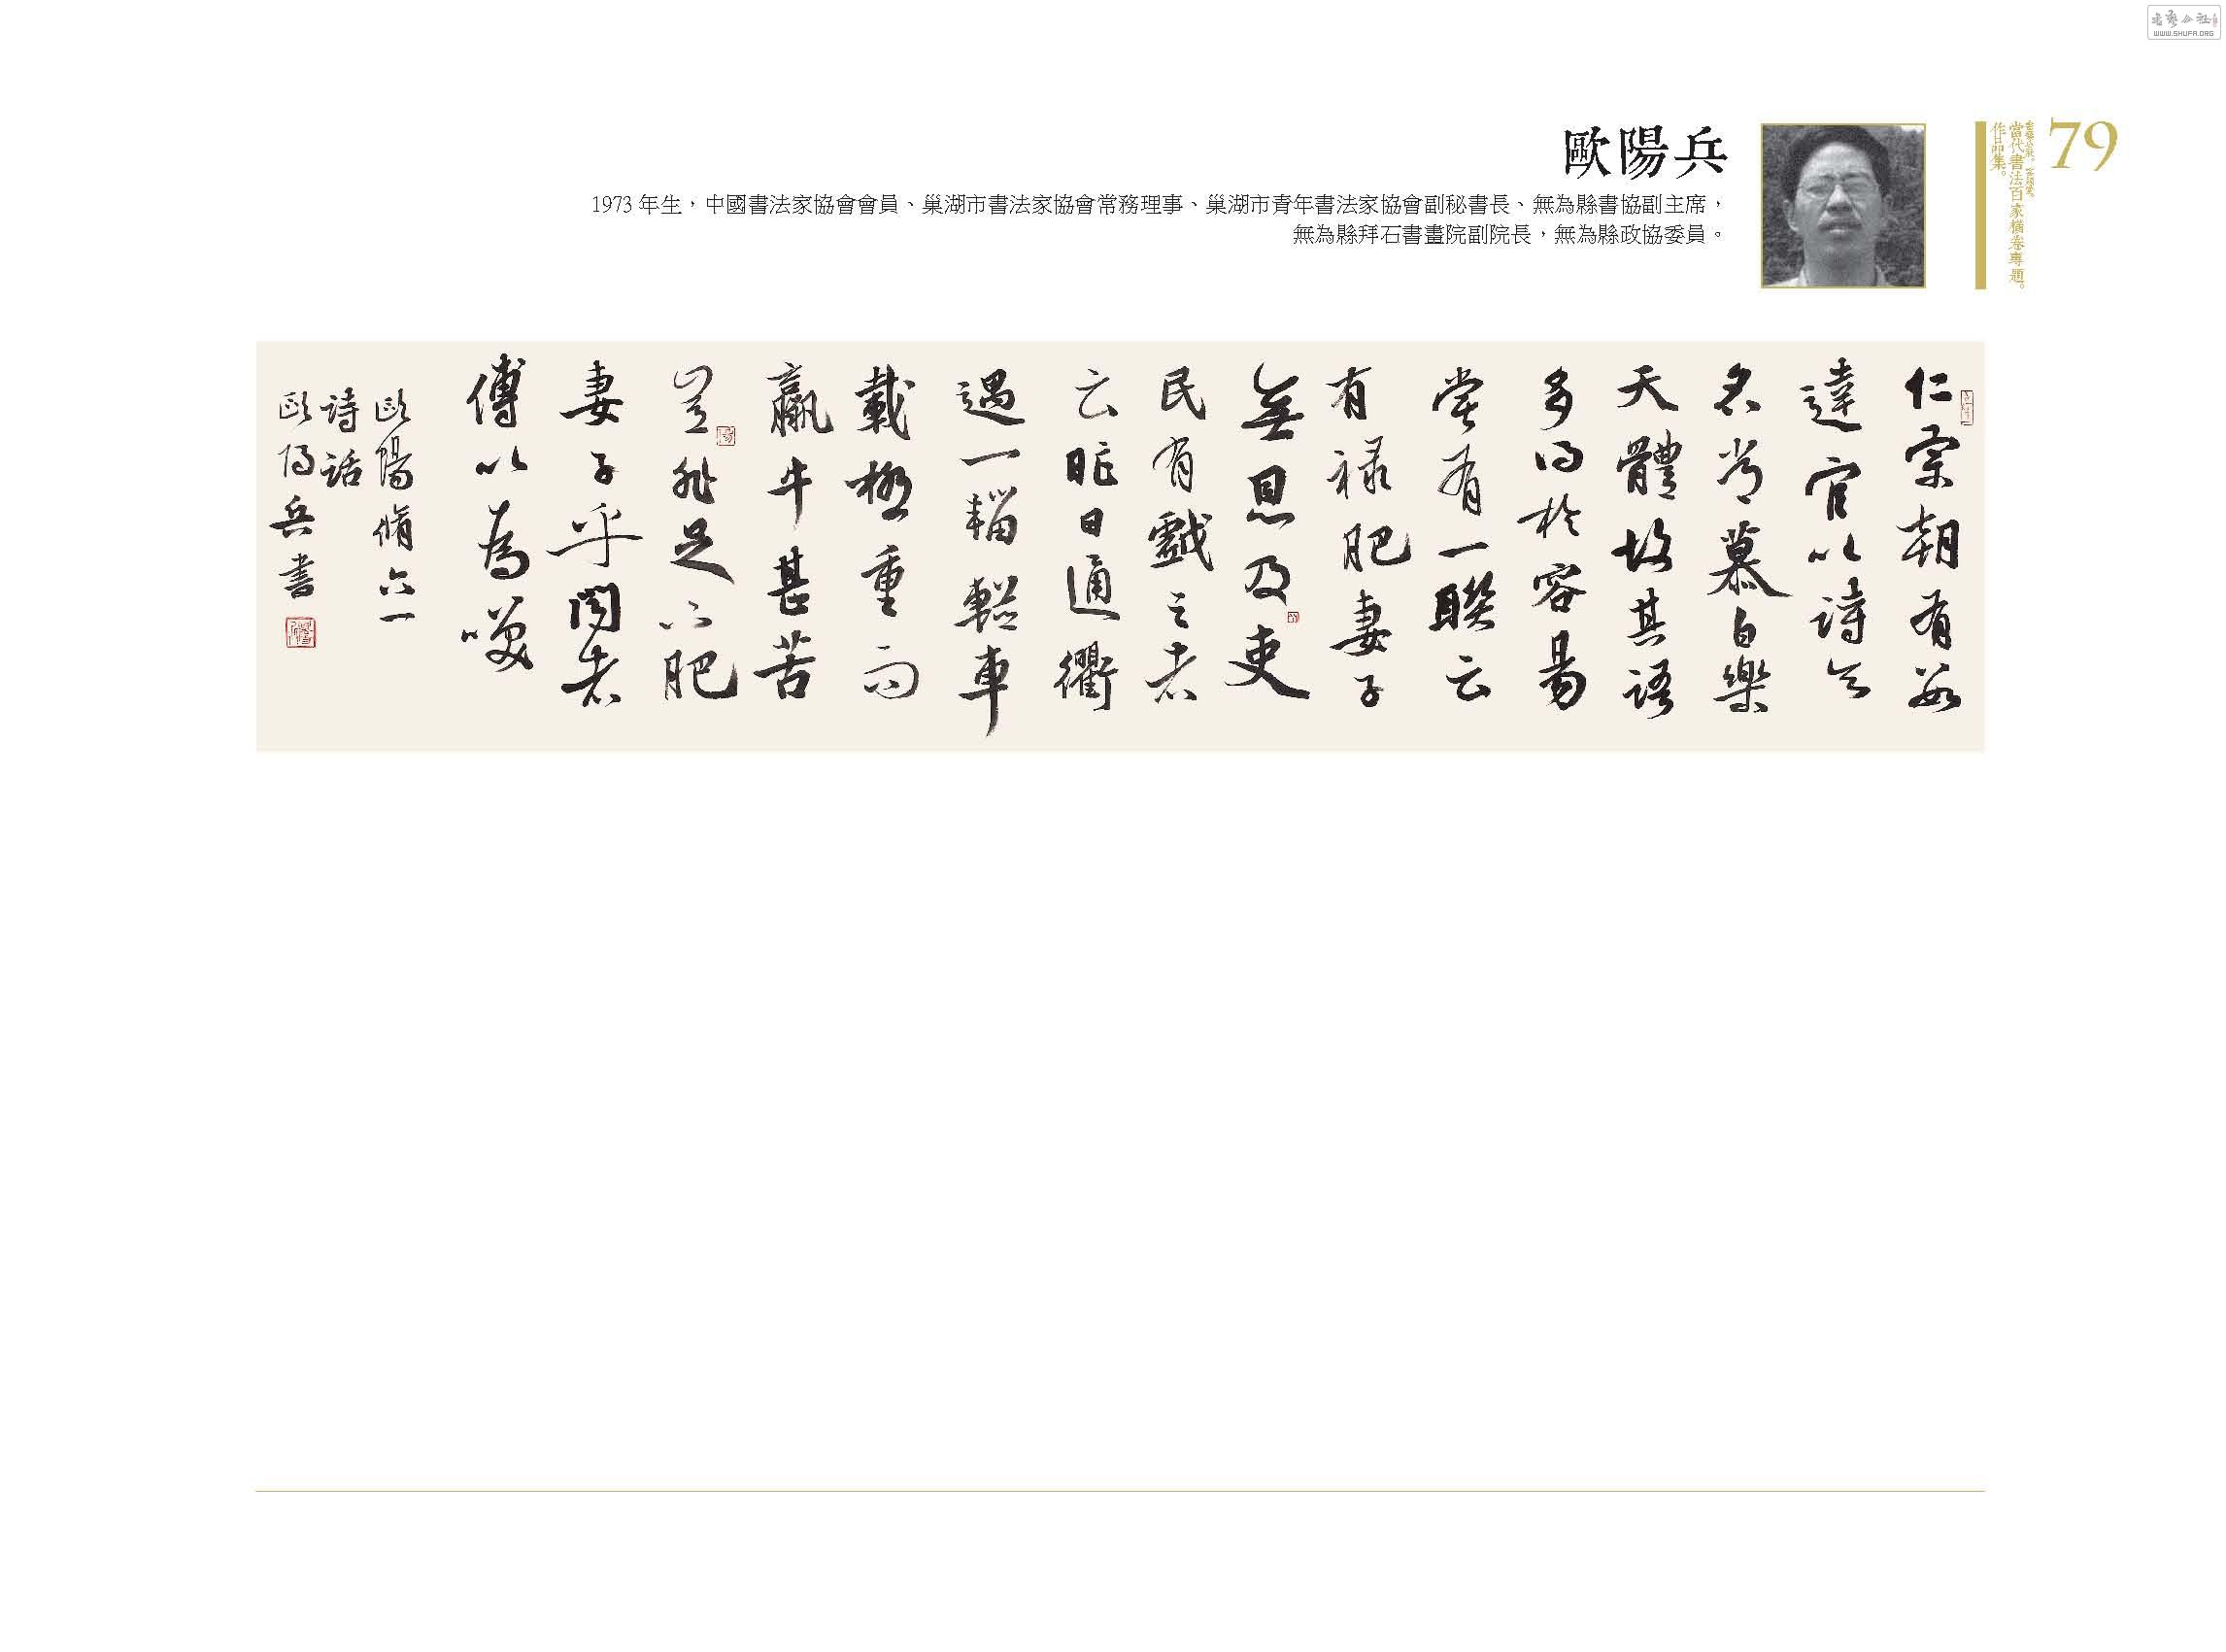 79
當代書法百家橫卷專題。
作品集。
歐陽兵
1973 年生，中國書法家協會會員、巢湖市書法家協會常務理事、巢湖市青年書法家協會副秘書長、無為縣書協副主席，
無為縣拜石書畫院副院長，無為縣政協委員。
仁宗朝有數
達官以詩知
名常慕白樂
天體故其語
多得於容易
嘗有一聯云
有祿肥妻子
無恩及吏
民有戲之者
云昨日通衢
遇一輜軿車
載極重而
羸牛甚苦
豈非足下肥
妻子乎聞者
傳以為笑
歐陽脩六一
詩話
歐陽兵書
WWW.SHUFA.ORG